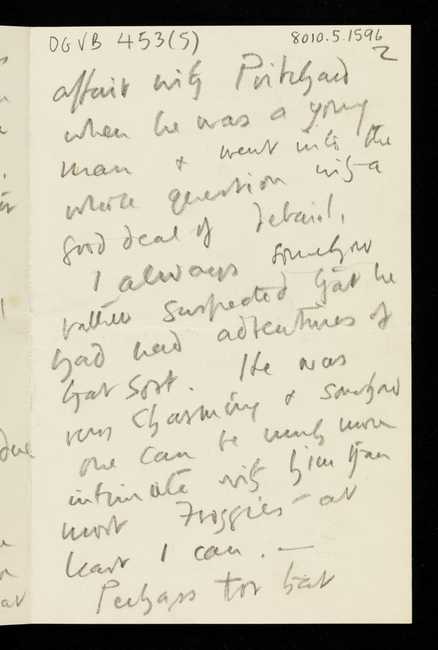 DGVB 453(5)
8010.5.1596
2
affair with Pritchard
when he was a young
man & went into the
whole question with a
good deal of detail.
I always somehow
rather suspected that he
had had adventures of
that sort. He was
very charming & somehow
one can be much more
intimate with him than
most Froggies – at
least I can. —
Perhaps for that